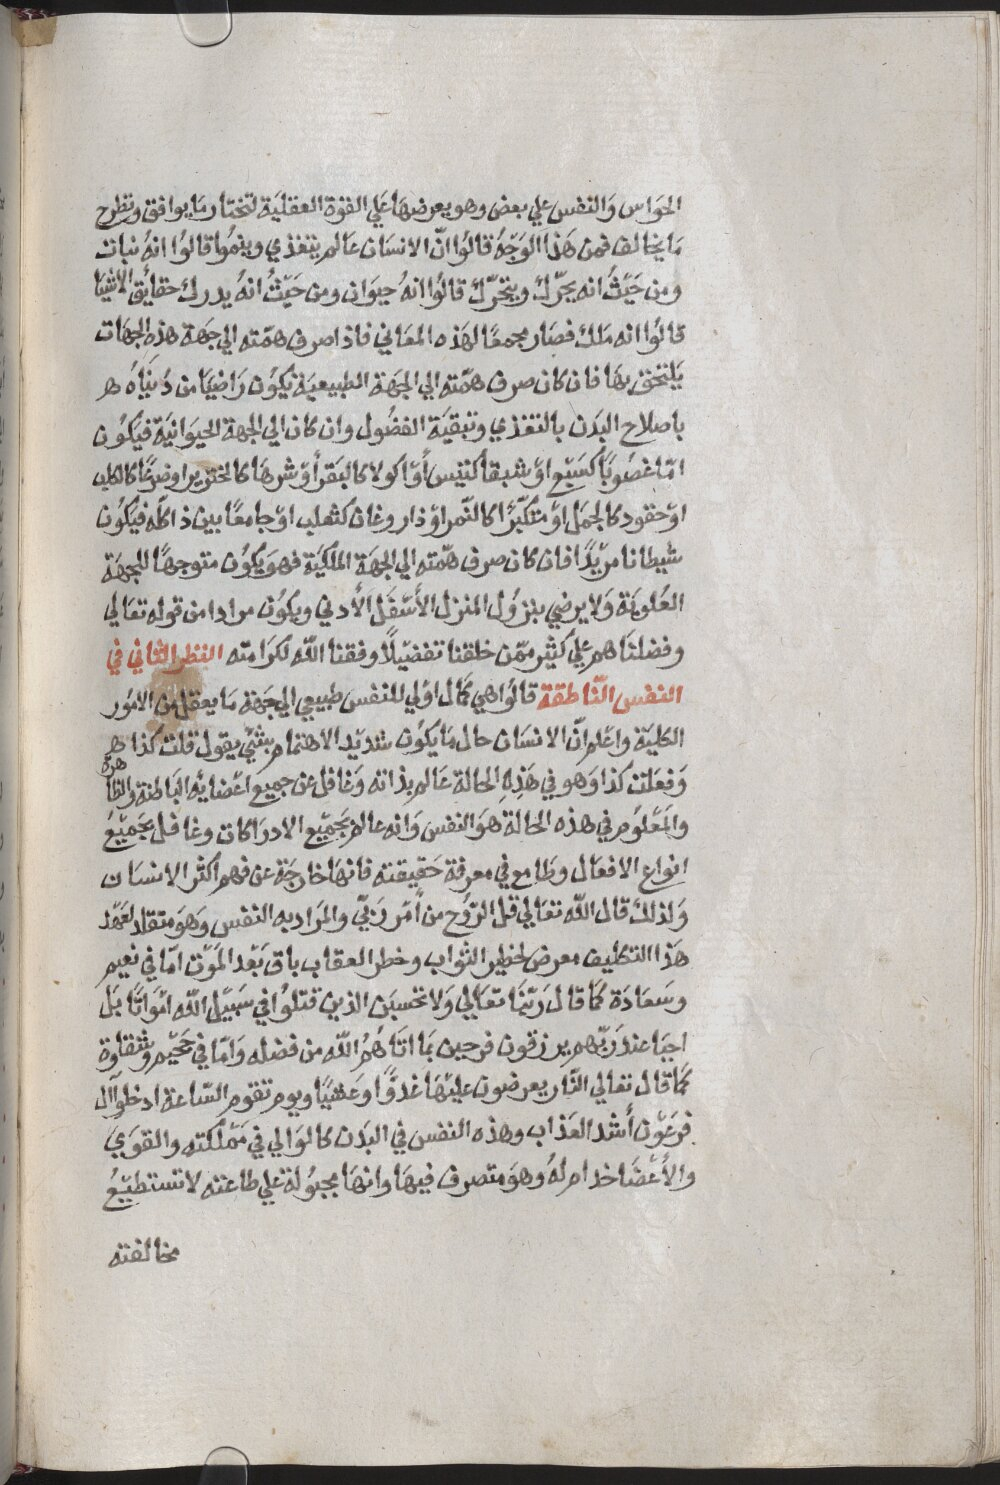 الحَواس وَالنفس علي بعض وهو يعرضهَا عَلي القوة العقليَة لتختار مَا يوافق وتطرح
مَا يخالف فمن هَذا الوَجْهُ قالوُا انّ الانسَان عَالم يتغذي وينمُوا قالوُا انهُ نبات
ومن حَيْثُ انه يحرّك ويتحَرّك قالوُا انهُ حيوَان ومن حَيْثُ انهُ يدرك حقايُق الاشيَا
قالوُا انه مَلك فصَار مجمعًا لهَذه المعَاني فاذ اصرف همّته الي جَهة هذه الجهَات
يَلتحق بهَا فان كان صرف همّته الي الجهَة الطبيعيَة يَكوُن رَاضيَا من دُنيَاهُ هر
باصلاح البدَن بالتغذي وتبقيَة الفضُول وان كان الي الجهة الحيَوانيَة فيكوُن
امّا غضوُبًا كسَبْع اوْ شبقا كتيْس أَوْ اكولا كالبَقر أوْ شرهَا كالخنزير اوضرعًا كالكلب
اوْ حقود كالجمَل اوْ متكبّرًا كالنّمر اوْ ذا روغان كثعلب اوْ جامعًا بين ذا كلّه فيكوُن
شيطانا مريْدًا فان كان صرف همّته الي الجهَة الملكيَة فهوَ يكوُن متوجهًا للجهَة
العُلويَة وَلا يرضي بنزوُل المنزل الأَسْفَل الأَدني ويكوُن مرادا من قوله تعَالي
وفضلناهم علي كثير ممّن خلقنا تفضيْلاً وفقنا اللّه لكرَامته النظر الثاني في
النفس النّاطقة قالوُا هي كمَال اوُلي للنفس طبيعي الي جَهَة مَا يعقل من الامُور
الكليَة واعْلم انّ الانسَان حال مَا يكوُن شديْد الاهتمَام بشئٍ يقول قلت كذا هر
وَفعَلت كذا وَهو في هَذهِ الحالة عَالم بذاته وَغافل عن جميع اعْضايه البَاطنة والظا
هرة
والمَعْلوُم في هذه الحالة هوَ النفس وَانه عالم بجَميْع الادرَاكات وغافل بجَميْعُ
انواع الافعَال وطامع في معرفة حَقيقته فانهَا خارجَة عن فهم اكثر الانسَان
وَلذلك قال اللّه تعَالي قل الرّوُح من أمْر رَبّي والمرَاد به النفس وَهوَ متقاد لعَهْد
هَذا التكليف معرض لخطر الثوَاب وخطر العقاب باق بَعْد المَوْت امّا في نعيم
وسَعَادَة كمَا قال رَبّنَا تعَالي وَلا تحسبَن الذين قتلوُا في سَبيْل اللّه امْوَاتًا بَل
احيَا عند رَبّهم يرزقون فرحين بمَا اتاهُمُ اللّه من فضله وَامّا في جَحيْم وشقاوة
كمَا قال تعَالي النّار يعرضون عليْهَا غدوًّا وَعَشيًّا ويوم تقوم السّاعة ادخلوُا آل
فرعَوْن أشد العَذاب وهذه النفس في البدَن كالوَالي في مَمْلكته والقوَيَ
والأعْضَا خدام لهُ وهوَ متصرف فيهَا وانهَا مجبوُلة علي طاعته لا تستطيْعُ
مخالفته